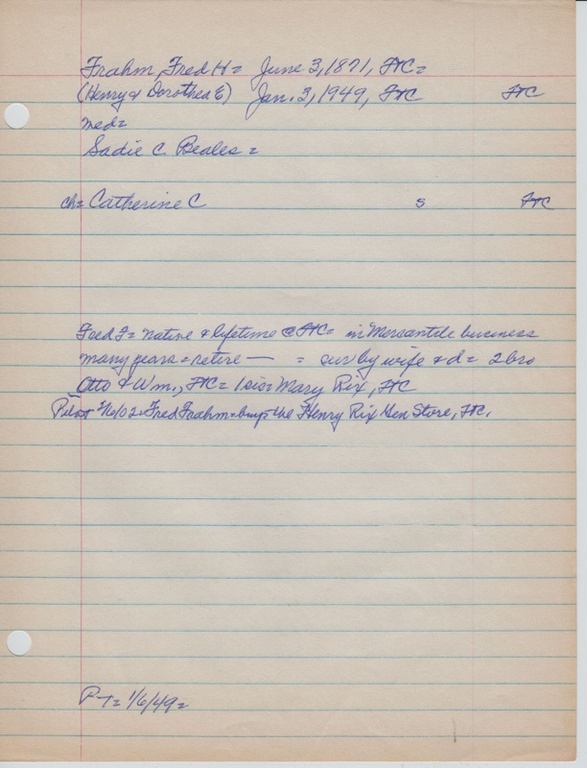 Frahm, Fred H = June 3, 1871, FtC =
(Henry & Dorothea E) Jan. 3, 1949, FtC FtC
med =
Sadie C Beales =
ch = Catherine C S FtC
Fred F = native & lifetime @ FtC = in Mercantile business
many years = retire — = sur by wife & d = 2 bro
Otto & Wm., FtC = 1 sis = Mary Rix, FtC
Pilot 1/16/02 = Fred Frahm = buys the Henry Rix Gen Store, FtC.
P-T = 1/6/49 =